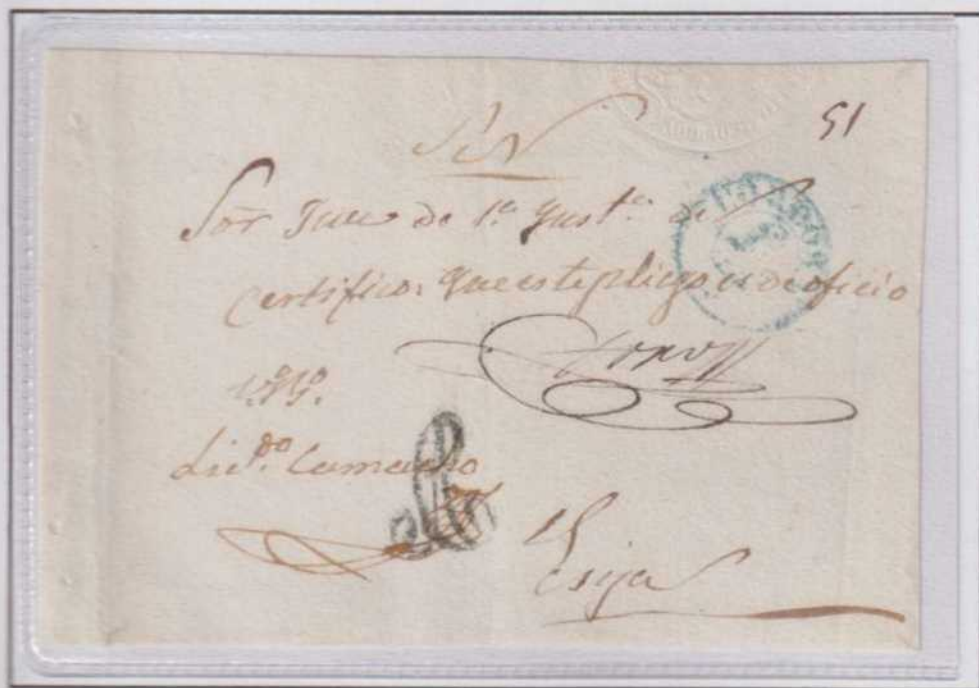 SeN
51
Sor Juez de 1ª Instª de
Certifico: que este pliego es de oficio
VºBº
Licdo Camacho
Esija